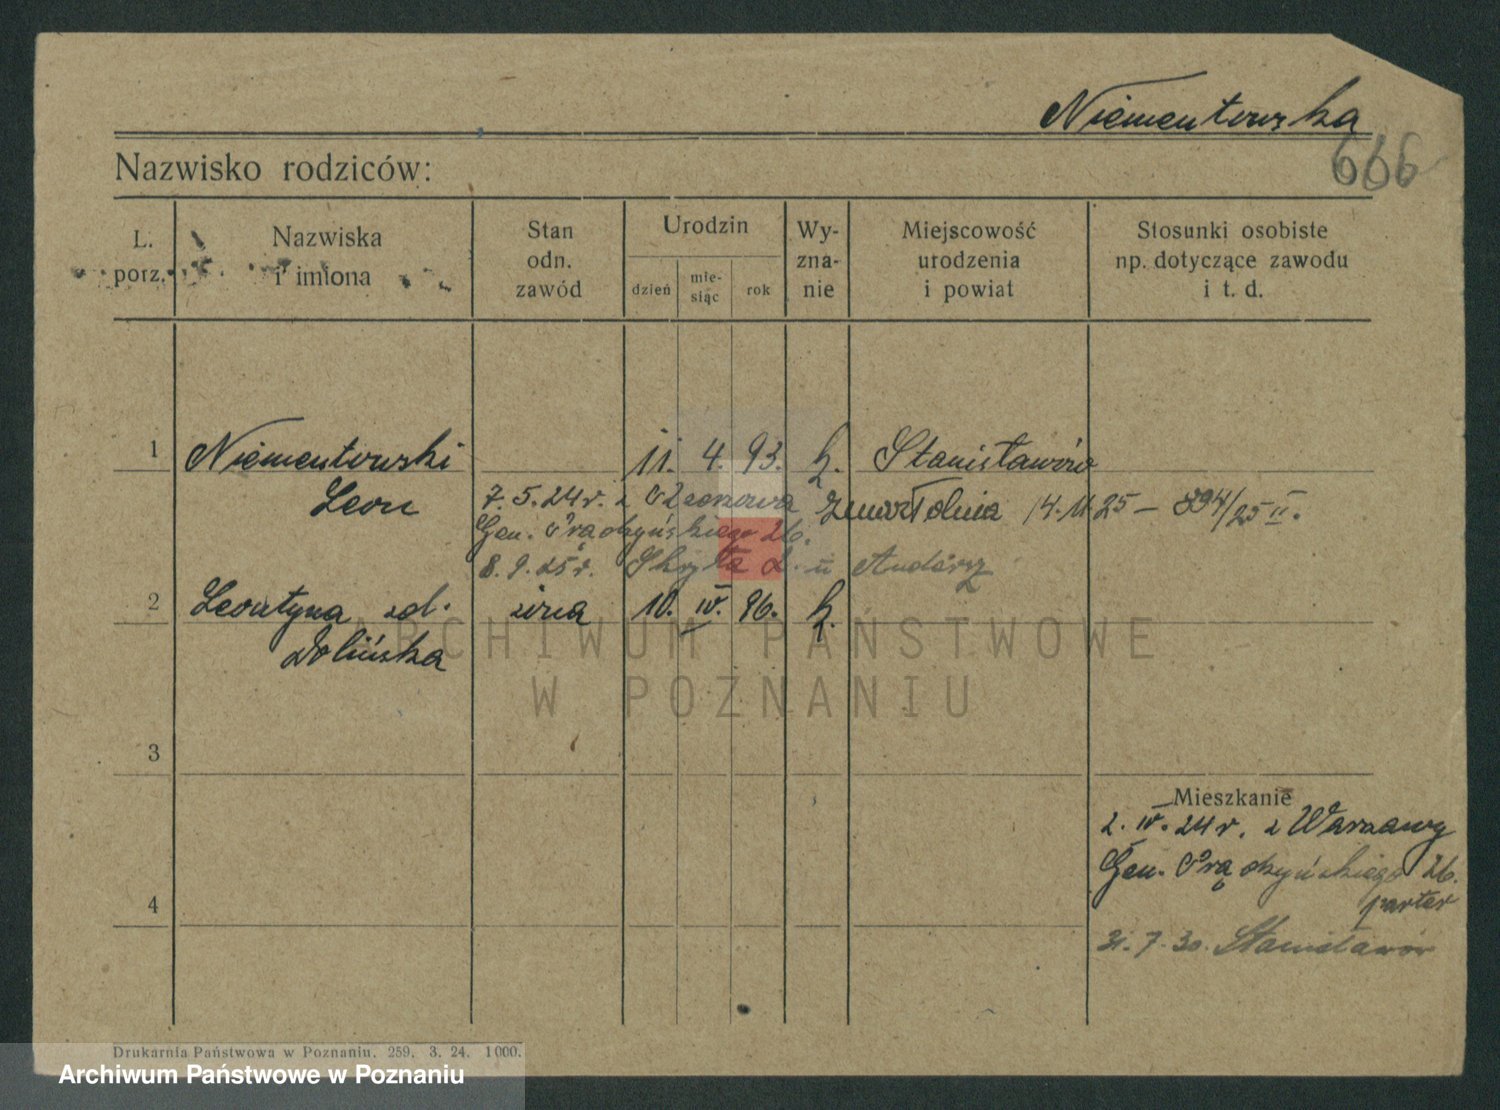 Niementowska
666
Nazwisko rodziców:
L. porz.
Nazwiska i imiona
Stan odn. zawód
Urodzin
dzień
mie-siąc
rok
Wy-zna-nie
Miejscowość urodzenia i powiat
Stosunki osobiste np. dotyczące zawodu i t. d.
1 Niementowski 11. 4. 93. k. Stanisławów
Leon 7. 5. 24 r. z zmarł dnia 14.11.25 – 894/25 II.
Gen. Prądzyńskiego 26.
8. 9. 25 r. Skryta 2. u
2 Leontyna zd. żona 10. IV. 96. k.
Dolińska
3
Mieszkanie
2. IV. 24 r. z Warszawy
Gen. Prądzyńskiego 26.
parter
4
31. 7. 30. Stanisławów
Drukarnia Państwowa w Poznaniu. 259. 3. 24. 1000.
ARCHIWUM PAŃSTWOWE
W POZNANIU
Archiwum Państwowe w Poznaniu